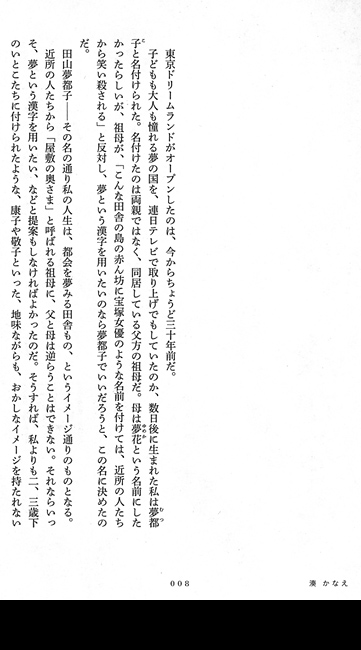 東京ドリームランドがオープンしたのは、今からちょうど三十年前だ。
子どもも大人も憧れる夢の国を、連日テレビで取り上げでもしていたのか、数日後に生まれた私は夢都
子と名付けられた。名付けたのは両親ではなく、同居している父方の祖母だ。母は夢花という名前にした
かったらしいが、祖母が、「こんな田舎の島の赤ん坊に宝塚女優のような名前を付けては、近所の人たち
から笑い殺される」と反対し、夢という漢字を用いたいのなら夢都子でいいだろうと、この名に決めたの
だ。
田山夢都子――その名の通り私の人生は、都会を夢みる田舎もの、というイメージ通りのものとなる。
近所の人たちから「屋敷の奥さま」と呼ばれる祖母に、父と母は逆らうことはできない。それならいっ
そ、夢という漢字を用いたい、などと提案もしなければよかったのだ。そうすれば、私よりも二、三歳下
のいとこたちに付けられたような、康子や敬子といった、地味ながらも、おかしなイメージを持たれない
008
湊 かなえ